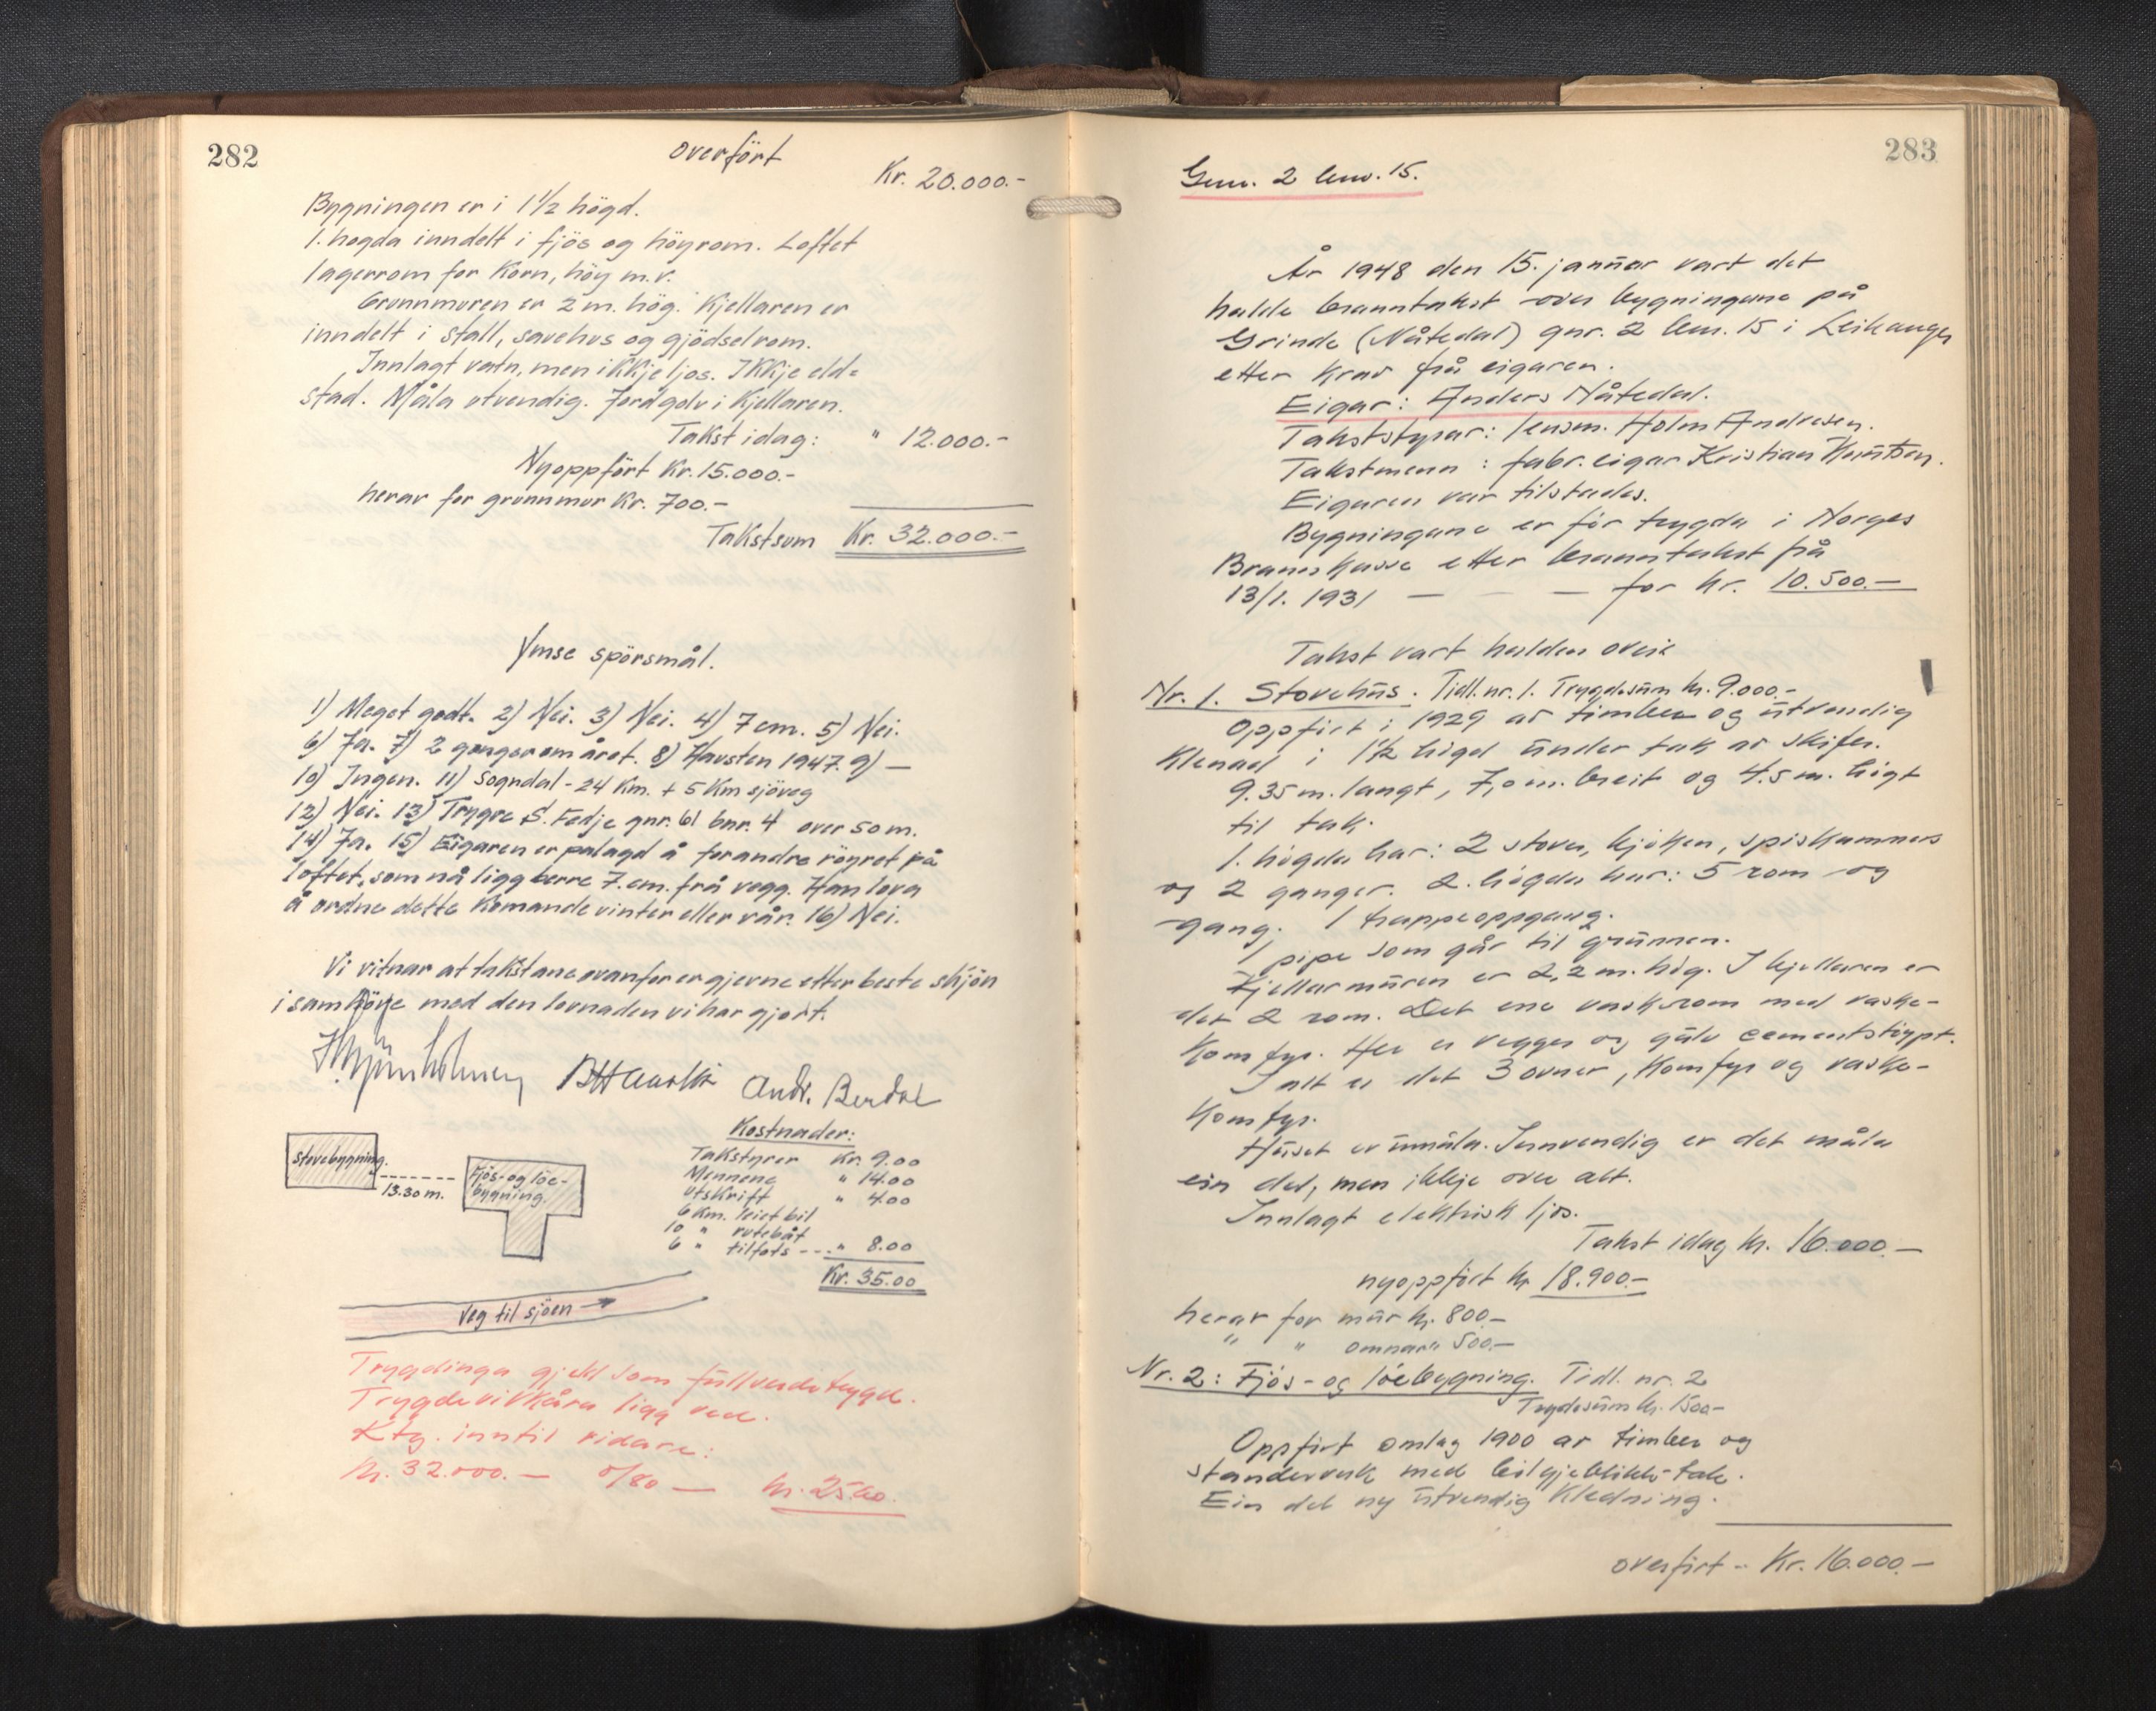 282
overfört
Kr. 20.000.-
Bygningen er i 1½ högd.
1. hogda inndelt i fjös og höyrom. Loftet
lagerrom for Korn, höy m.v.
Grunnmuren er 2 m. hög. Kjellaren er
inndelt i stall, savehus og gjödselrom.
Innlagt vatn, men ikkje ljos. Ikkje eld=
stad. Måla utvendig. Jordgolv i Kjellaren.
Takst idag: " 12.000.-
Nyoppfört Kr. 15.000.-
herav for grunnmur Kr. 700.-
Takstsum Kr. 32.000.-
Ymse spörsmål.
1) Meget godt. 2) Nei. 3) Nei. 4) 7 cm. 5) Nei.
6) Ja. 7) 2 ganger om året. 8) Hausten 1947. 9) —
10) Ingen. 11) Sogndal - 24 Km. + 5 Km sjöveg
12) Nei. 13) Trygve S. Fedje gnr. 61 bnr. 4 over 50 m.
14) Ja. 15) Eigaren er palagd å forandre röyret på
loftet, som nå ligg berre 7. cm. frå vegg. Han lova
å ordne dette Komande vinter eller vår. 16) Nei.
Vi vitnar at takstane ovanfor er gjevne etter beste skjön
i samhöve med den lovnaden vi har gjort.
Andr. Berdal
Kostnader:
Takstyrer Kr. 9.00
Mennene " 14.00
Utskrift " 4.00
6 Km. leiet bil
10 " rutebåt
6 " tilfots --- " 8.00
Kr. 35.00
Stovebygning.
13.30 m.
Fjös- og löe-
bygning.
Veg til sjöen →
Trygdinga gjeld som fullverdetrygd.
Trygdevilkåra ligg ved.
Ktg. inntil vidare:
Kr. 32.000.— 0/80 — Kr. 25.60.
283
Gnr. 2 bnr. 15.
År 1948 den 15. januar vart det
halde branntakst over bygningane på
Grinde (Nåtedal) gnr. 2 bnr. 15 i Leikanger
etter krav frå eigaren.
Eigar: Anders Nåtedal.
Takststyrar: lensm. Holm Andresen.
Takstmenn: fabr. eigar Kristian
Eigaren var tilstades.
Bygningane er för trygda i Norges
Brannkasse etter branntakst frå
13/1. 1931 — — — for kr. 10.500.—
Takst vart halden over:
Nr. 1. Stovehus. Tidl. nr. 1. Trygdesum kr. 9.000.-
Oppfört i 1929 av timber og utvendig
Klenad i 1½ högd under tak av skifer.
9.35 m. langt, 7,0 m. breit og 4.5 m. högt
til tak.
1. högda har: 2 stover, kjöken, spiskammers
og 2 ganger. 2. högda har: 5 rom og
gang. 1 trappeoppgang.
1 pipe som går til grunnen.
Kjellarmuren er 2,2 m. hög. I kjellaren er
det 2 rom. Det ene vaskerom med vaske-
komfyr. Her er vegger og gulv cementstöypt.
I alt er det 3 ovner, komfyr og vaske-
komfyr.
Huset er umåla. Innvendig er det måla
ein del, men ikkje over alt.
Innlagt elektrisk ljos.
Takst idag kr. 16.000.—
nyoppfört kr 18.900.—
herav for mur kr. 800.—
" " omnar " 500.—
Nr. 2: Fjös- og löebygning. Tidl. nr. 2
Trygdesum kr. 1500.-
Oppfört omlag 1900 av timber og
standerverk med bölgjeblikk-tak.
Ein del ny utvendig kledning.
overfört - Kr. 16.000.—